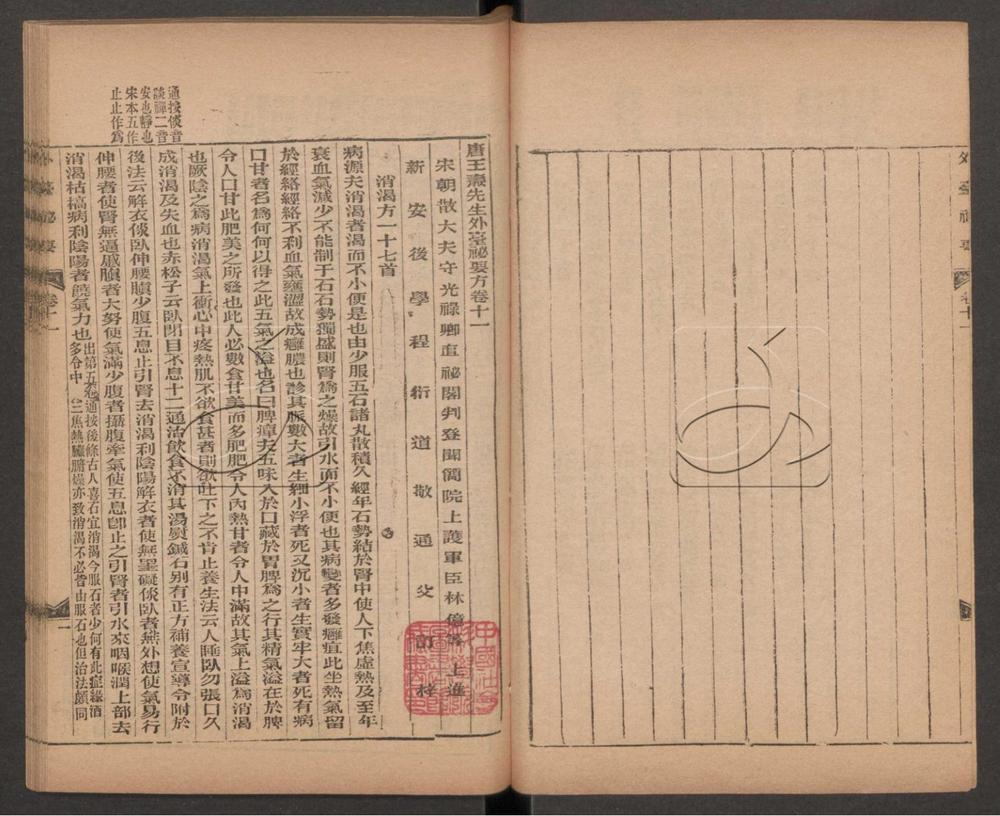 外臺祕要
卷十一
唐王燾先生外臺祕要方卷十一
宋朝散大夫守光祿卿直祕閣判登聞檢院上護軍臣林億等上進
新安後學程衍道敬通父訂梓
消渴方一十七首
病源夫消渴者渴而不小便是也由少服五石諸丸散積久經年石勢結於腎中使人下焦虛熱及至年
衰血氣減少不能制于石石勢獨盛則腎為之燥故引水而不小便也其病變者多發癰疽此坐熱氣留
於經絡經絡不利血氣壅澀故成癰膿也診其脈數大者生細小浮者死又沉小者生實牢大者死有病
口甘者名為何何以得之此五氣之溢也名曰脾瘅夫五味入於口藏於胃脾為之行其精氣溢在於脾
令人口甘此肥美之所發也此人必數食甘美而多肥肥令人內熱甘者令人中滿故其氣上溢為消渴
也厥陰之為病消渴氣上衝心中疼熱肌不欲食甚者則欲吐下之不肯止養生法云人睡臥勿張口久
成消渴及失血也赤松子云臥閉目不息十二通治飲食不消其湯熨鍼石別有正方補養宣導令附於
後法云解衣倓臥伸腰瞋少腹五息止引腎去消渴利陰陽解衣者使無罣礙倓臥者無外想使氣易行
伸腰者使腎無逼慼瞋者大努使氣滿少腹者攝腹牽氣使五息卽止之引腎者引水來咽喉潤上部去
消渴枯槁病利陰陽者饒氣力也多令中
出第五卷通按後條古人喜石宜消渴今服石者少何有此症緣酒
三焦熱臟腑燥亦致消渴不必皆由服石也但治法頗同
通按倓音
談禪二音
安也靜也
宋本五作
止止作為
卷十一
一